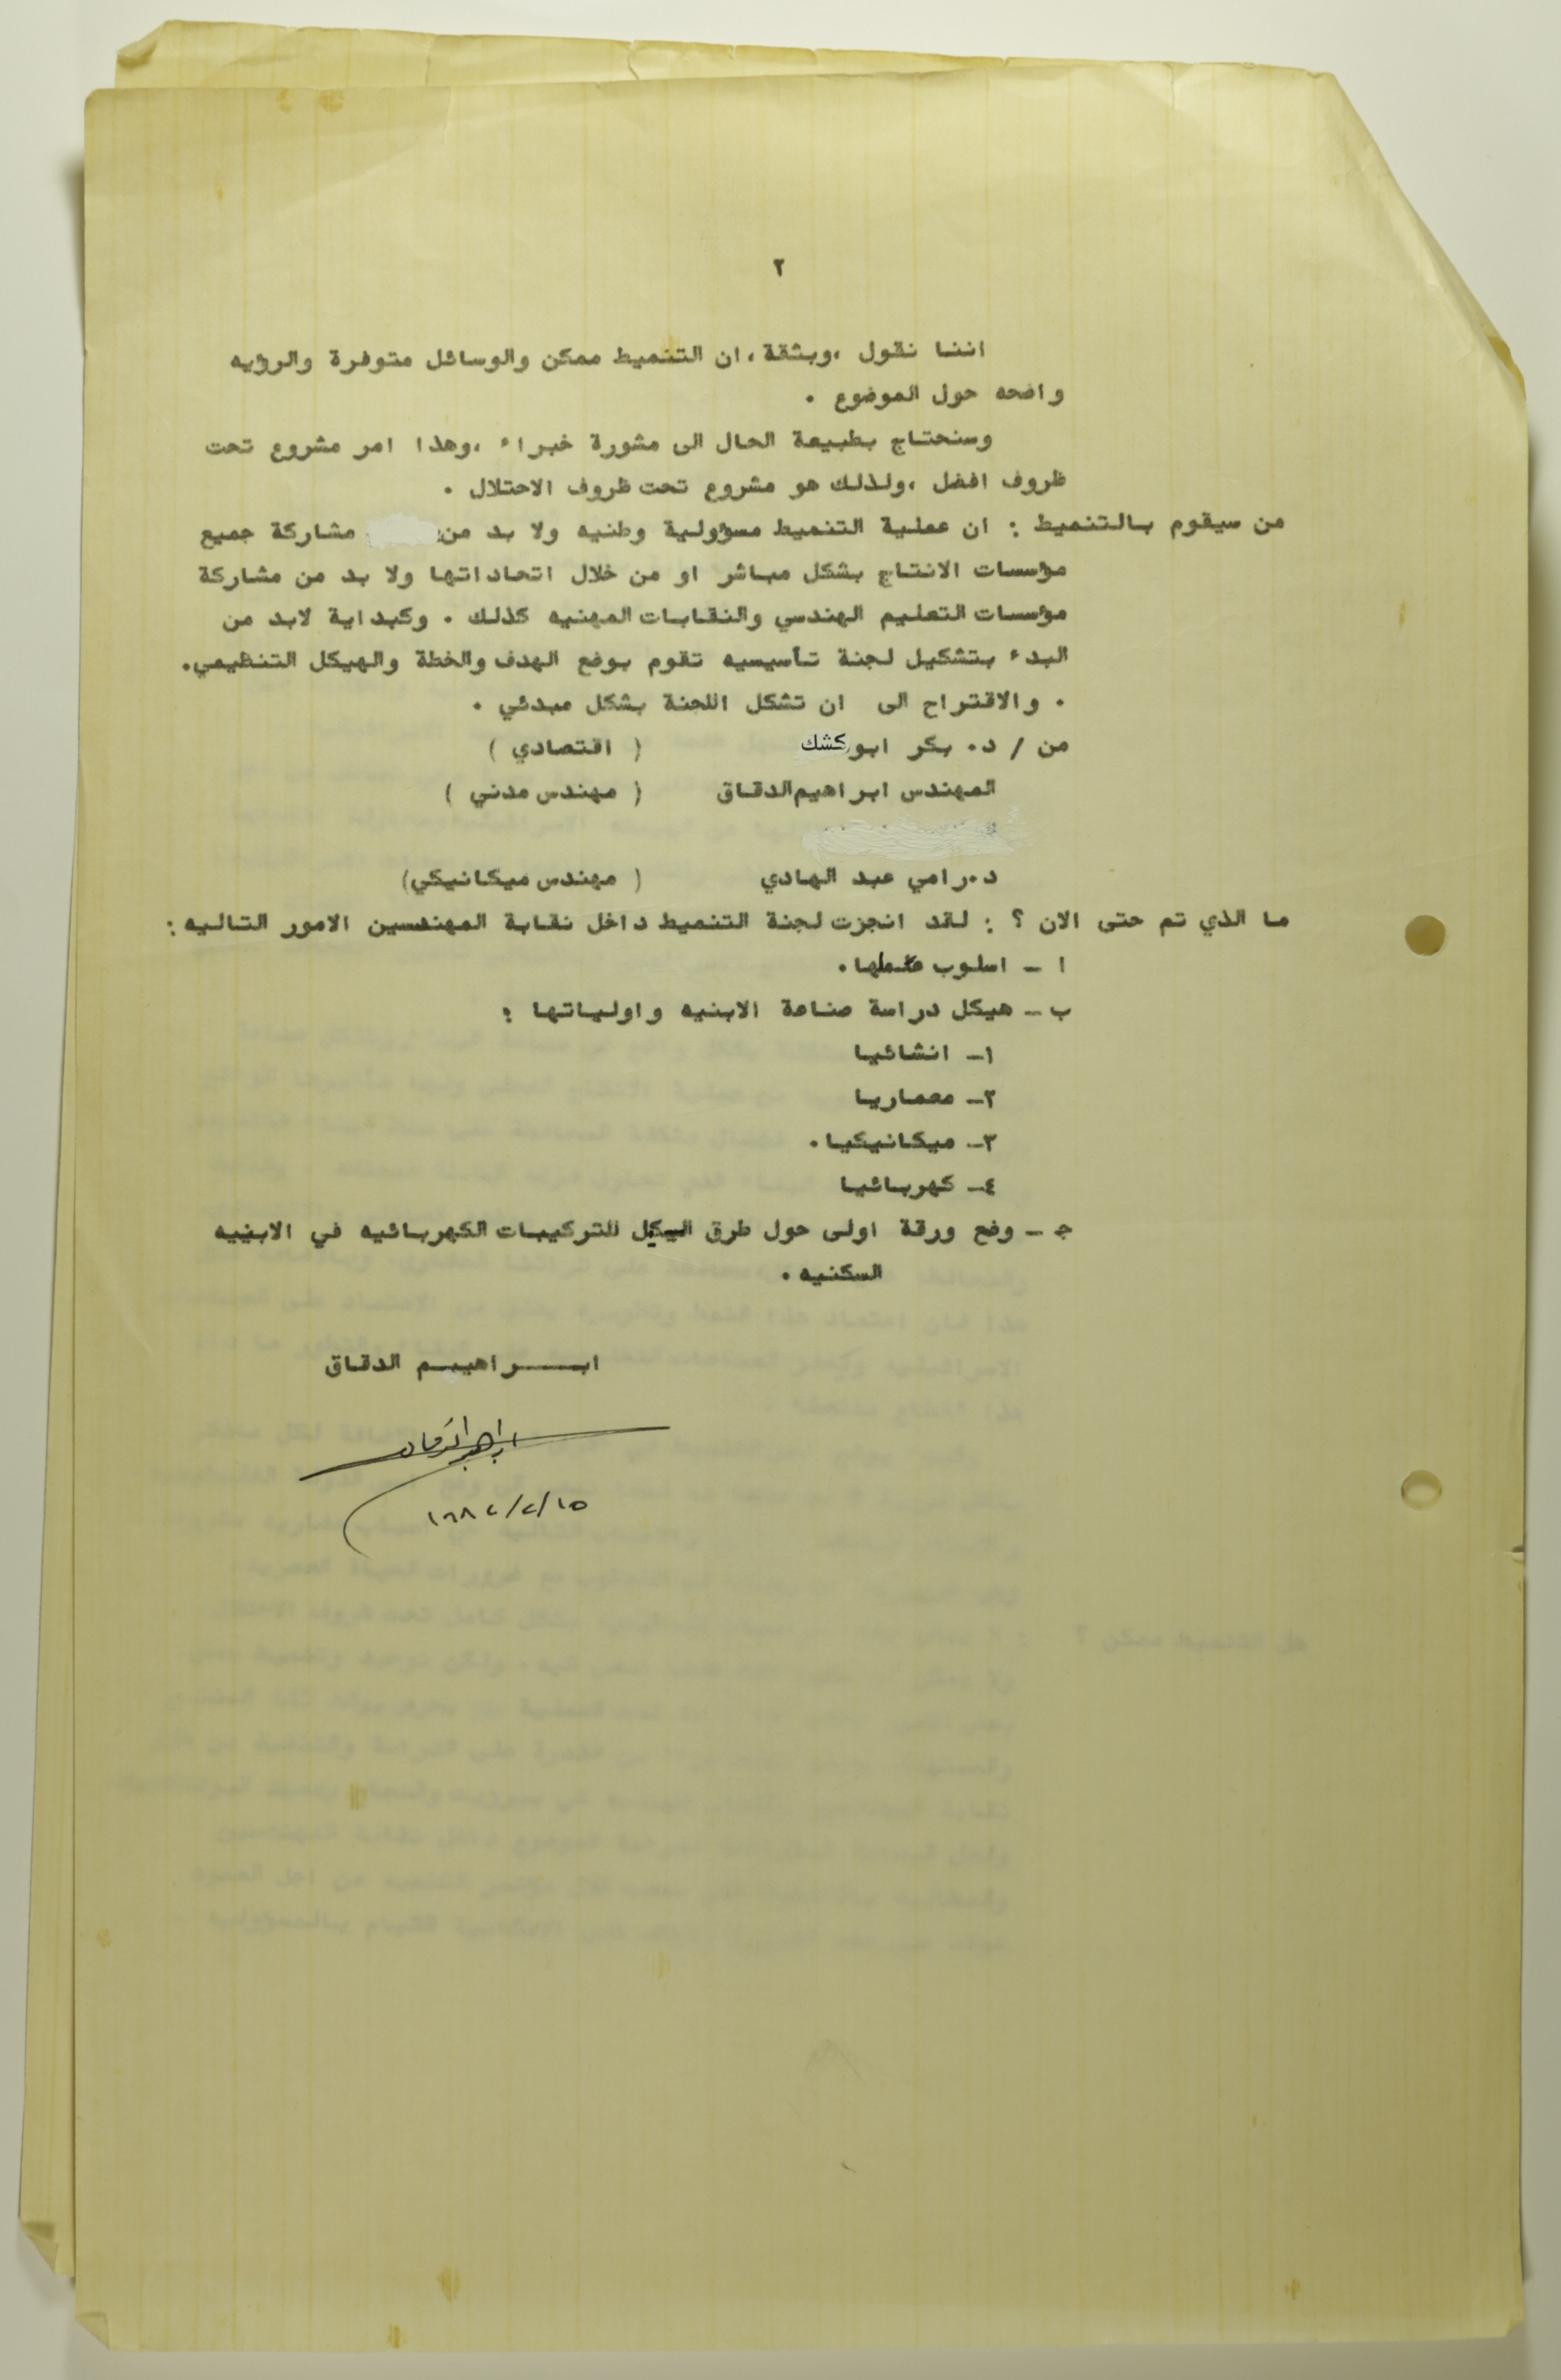 ٢
اننا نقول ،وبثقة ، ان التنميط ممكن والوسائل متوفرة والرؤيه
واضحه حول الموضوع .
وسنحتاج بطبيعة الحال الى مشورة خبراء ،وهذا امر مشروع تحت
ظروف افضل ،ولذلك هو مشروع تحت ظروف الاحتلال .
من سيقوم بالتنميط : ان عملية التنميط مسؤولية وطنيه ولا بد من مشاركة جميع
مؤسسات الانتاج بشكل مباشر او من خلال اتحاداتها ولا بد من مشاركة
مؤسسات التعليم الهندسي والنقابات المهنيه كذلك . وكبداية لابد من
البدء بتشكيل لجنة تأسيسيه تقوم بوضع الهدف والخطة والهيكل التنظيمي.
. والاقتراح الى ان تشكل اللجنة بشكل مبدئي .
من / د. بكر ابوكشك ( اقتصادي )
المهندس ابراهيم الدقاق ( مهندس مدني )
د.رامي عبد الهادي ( مهندس ميكانيكي)
ما الذي تم حتى الان ؟ : لقد انجزت لجنة التنميط داخل نقابة المهندسين الامور التاليه :
ا - اسلوب عملها.
ب - هيكل دراسة صناعة الابنيه واولياتها :
١- انشائيا
٢- معماريا
٣- ميكانيكيا.
٤- كهربائيا
ج - وضع ورقة اولى حول طرق للتركيبات الكهربائيه في الابنيه
السكنيه .
ابـــراهيـم الدقاق
ابراهيم الدقاق
١٩٨٢/٢/١٥